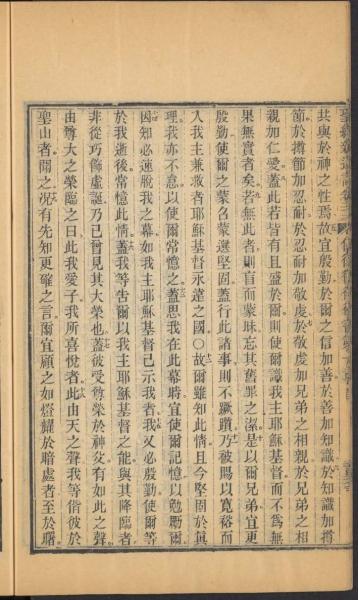 共與於神之性焉故宜殷勤於爾之信加善於善加知識於知識加撙
節於撙節加忍耐於忍耐加敬虔於敬虔加兄弟之相親於兄弟之相
親加仁愛蓋此若皆有且盛於爾則使爾識我主耶穌基督而不為無
果無實者矣若無此者則盲而蒙昧忘其舊罪之潔是以爾兄弟宜更
殷勤使爾之蒙召蒙選堅固蓋行此諸事則不蹶躓乃被賜以寬裕而
入我主兼救者耶穌基督永遠之國○故爾雖知此情且今堅固於真
理我亦不怠以使爾常憶之蓋思我在此幕時宜使爾記憶以勉勵爾
因知必速脫我之幕如我主耶穌基督已示我者我又必殷勤使爾等
於我逝後常憶此情蓋我等告爾以我主耶穌基督之能與其降臨者
非從巧飾虛誕乃已曾見其大榮也蓋彼受尊榮於神父有如此之聲
由尊大之榮臨之曰此我愛子我所喜悅者此由天之聲我等偕彼於
聖山者聞之況有先知更確之言爾宜顧之如燈耀於暗處者至於曙